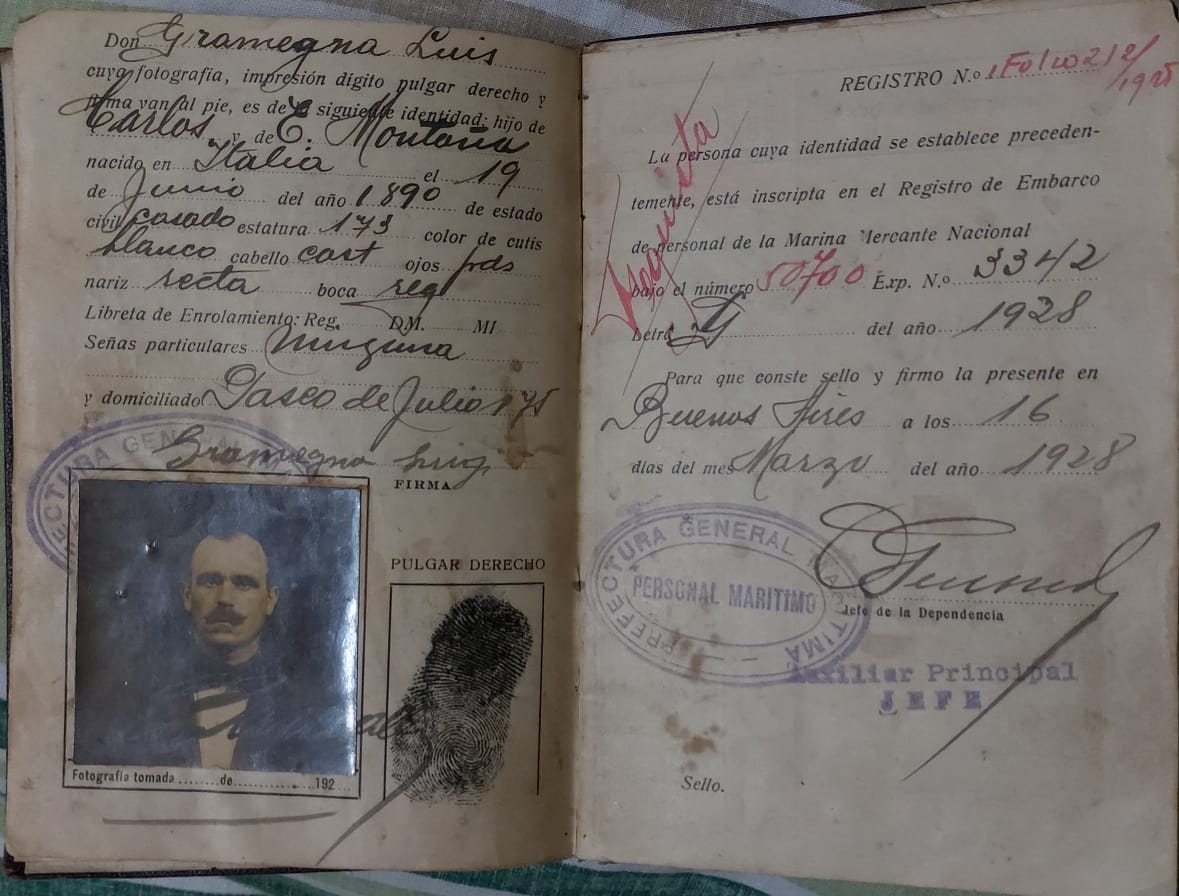 Don Gramegna Luis
cuya fotografía, impresión dígito pulgar derecho y
firma van al pie, es de la siguiente identidad: hijo de
Carlos y de E. Montaña
nacido en Italia el 19
de Junio del año 1.890 de estado
civil casado estatura 173 color de cutis
blanco cabello cast ojos pds
nariz recta boca reg
Libreta de Enrolamiento: Reg. DM. MI
Señas particulares Ninguna
y domiciliado Paseo de Julio 175
Gramegna Luigi
FIRMA
PREFECTURA GENERAL
PULGAR DERECHO
Fotografía tomada de 192
REGISTRO N.o Folio 212/
1928
La persona cuya identidad se establece preceden-
temente, está inscripta en el Registro de Embarco
de personal de la Marina Mercante Nacional
bajo el número 50700 Exp. N.o 3342
Letra G del año 1928
Foguista
Para que conste sello y firmo la presente en
Buenos Aires a los 16
días del mes Marzo del año 1928
PREFECTURA GENERAL MARITIMA
PERSONAL MARITIMO
Jefe de la Dependencia
Auxiliar Principal
JEFE
Sello.